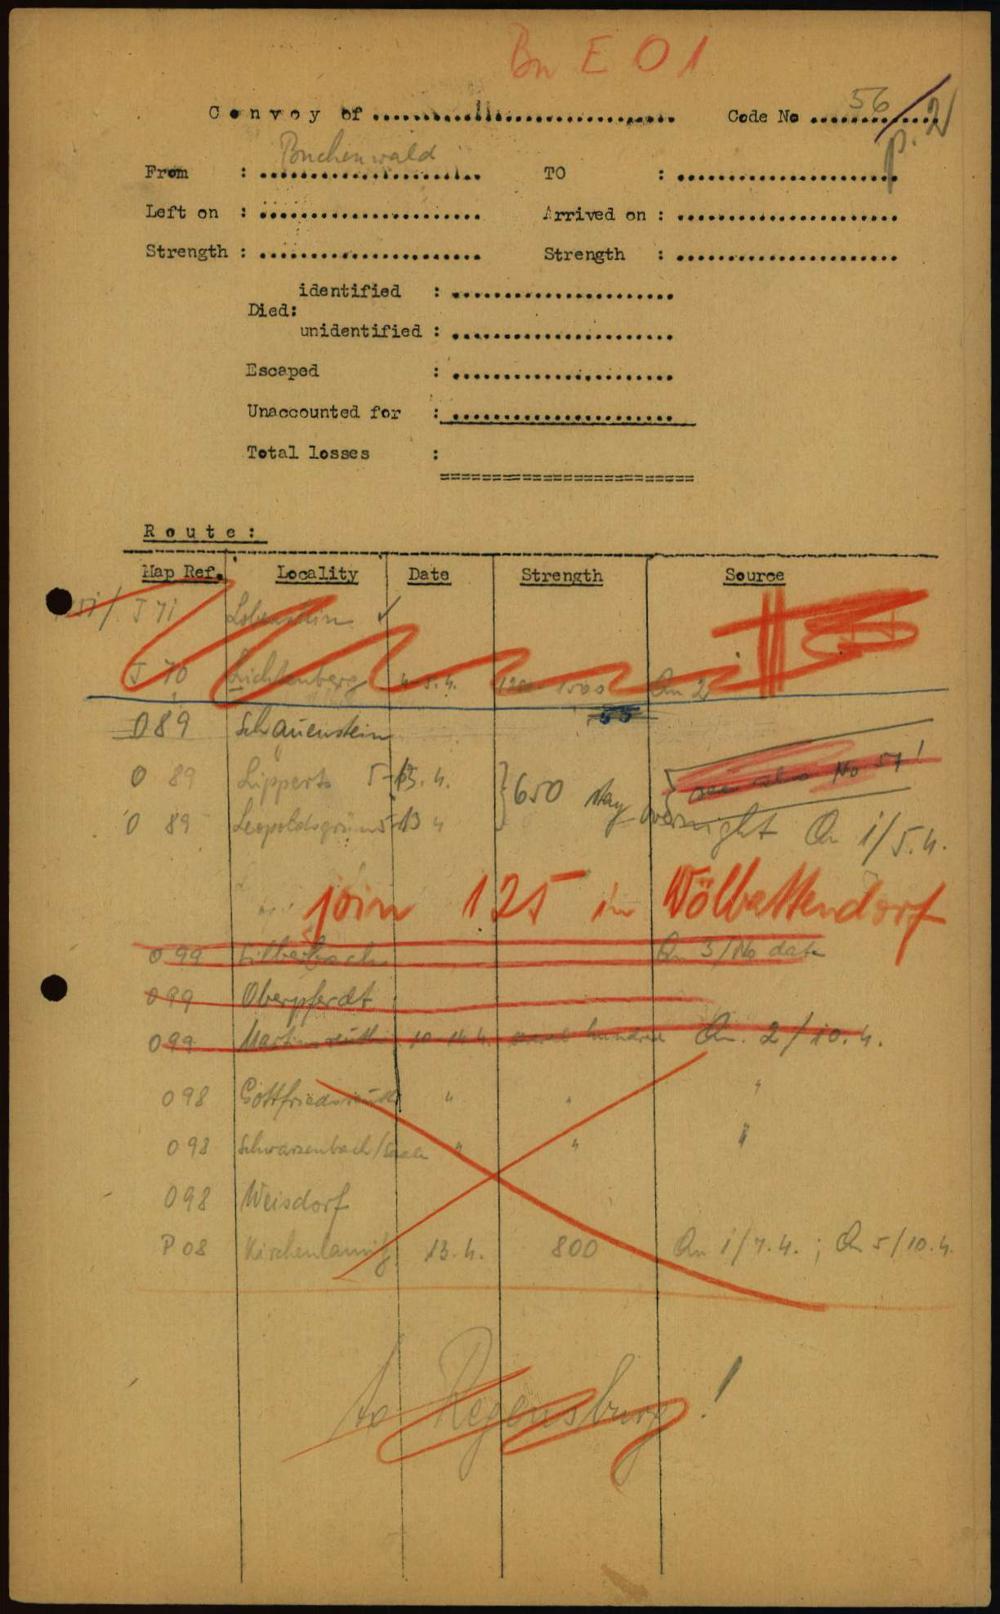 Bu E 01
Convoy of ........................ Code No 56/p. 2
From : Buchenwald TO : ....................
Left on : .................... Arrived on : ....................
Strength : .................... Strength : ....................
identified : ....................
Died:
unidentified : ....................
Escaped : ....................
Unaccounted for : ....................
Total losses :
=========================
Route:
Map Ref. Locality Date Strength Source
J 71 Lobenstein ✓
J 70 Lichtenberg 4-5.4. 1200-1500 Qu 2
55
089 Schauenstein
0 89 Lipperts 5-13.4. see also No 57!
}650 stay overnight Qu 1/5.4.
0 89 Leopoldsgrün 5-13 4
join 125 in Wölbattendorf
099 Silberbach Qu 3/No date
099 Oberpferdt
099 Martinsreuth 10-14.4. hundred Qu. 2/10.4.
098 Gottfriedsreuth " " "
098 Schwarzenbach/Saale " " "
098 Weisdorf
P08 Kirchenlamitz 13.4. 800 Qu 1/7.4. ; Qu 5/10.4.
to Regensburg!